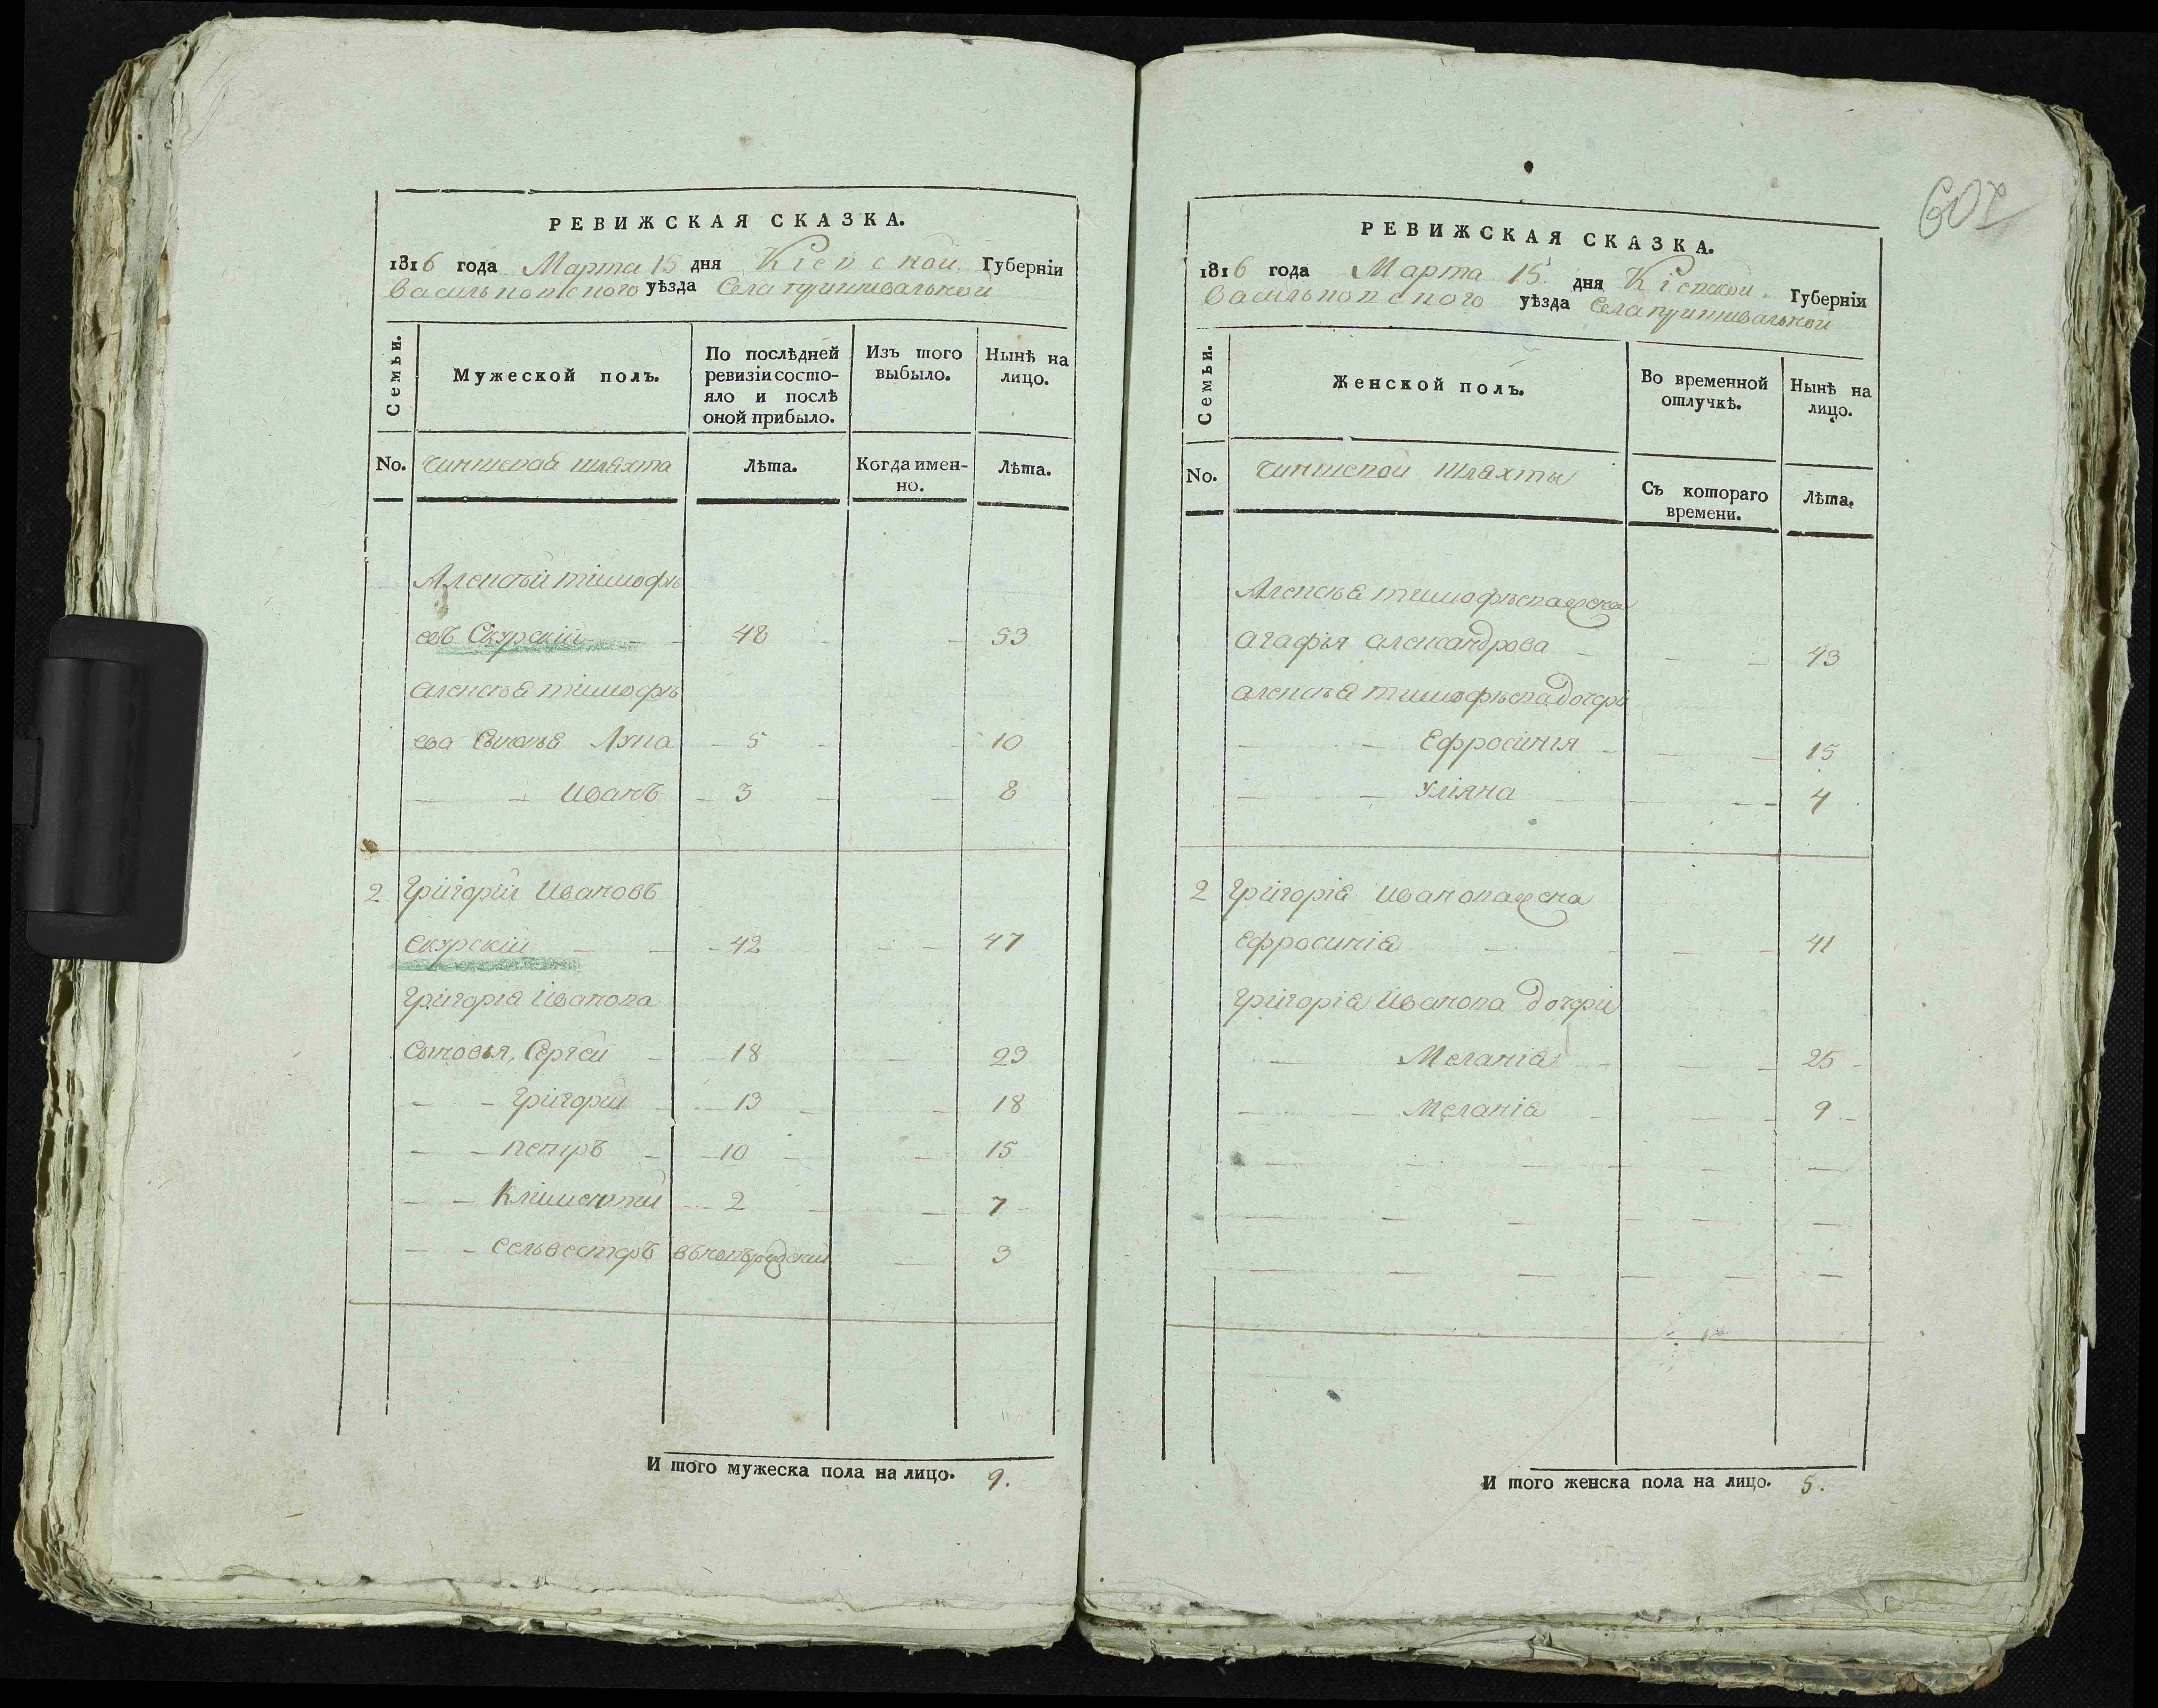 РЕВИЖСКАЯ СКАЗКА.
1816 года Марта 15 дня Кіевской Губерніи
Васильковского уѣзда Села пришивальной
Семьи.
Мужеской полъ.
По послѣдней
ревизіи состо-
яло и послѣ
оной прибыло.
Изъ того
выбыло.
Нынѣ на
лицо.
No.
чиншевая шляхта
Лѣта.
Когда имен-
но.
Лѣта.
Алексѣй тимофѣ
евъ Скурскій 48 53
алексѣя тимофѣ
ева Сыновя Лука 5 10
Иванъ 3 8
2 Григорій Ивановъ
Скурскій 42 47
Григорія Иванова
Сыновья, Сергей 18 23
Григорій 13 18
Петръ 10 15
Климентій 2 7
Селвестръ 3
И того мужеска пола на лицо. 9.
602
РЕВИЖСКАЯ СКАЗКА.
1816 года Марта 15 дня Кіевской Губерніи
Васильковского уѣзда Села пришивальной
Семьи.
Женской полъ.
Во временной
отлучкѣ.
Нынѣ на
лицо.
No.
чиншевой шляхты
Съ котораго
времени.
Лѣта.
Алексѣя тимофѣева жена
агафія александрова 43
алексѣя тимофѣева дочери
Ефросинія 15
Уліяна 4
2 Григорія Иванова жена
ефросинія 41
Григорія Иванова дочери
Меланія 25
Меланія 9
И того женска пола на лицо. 5.